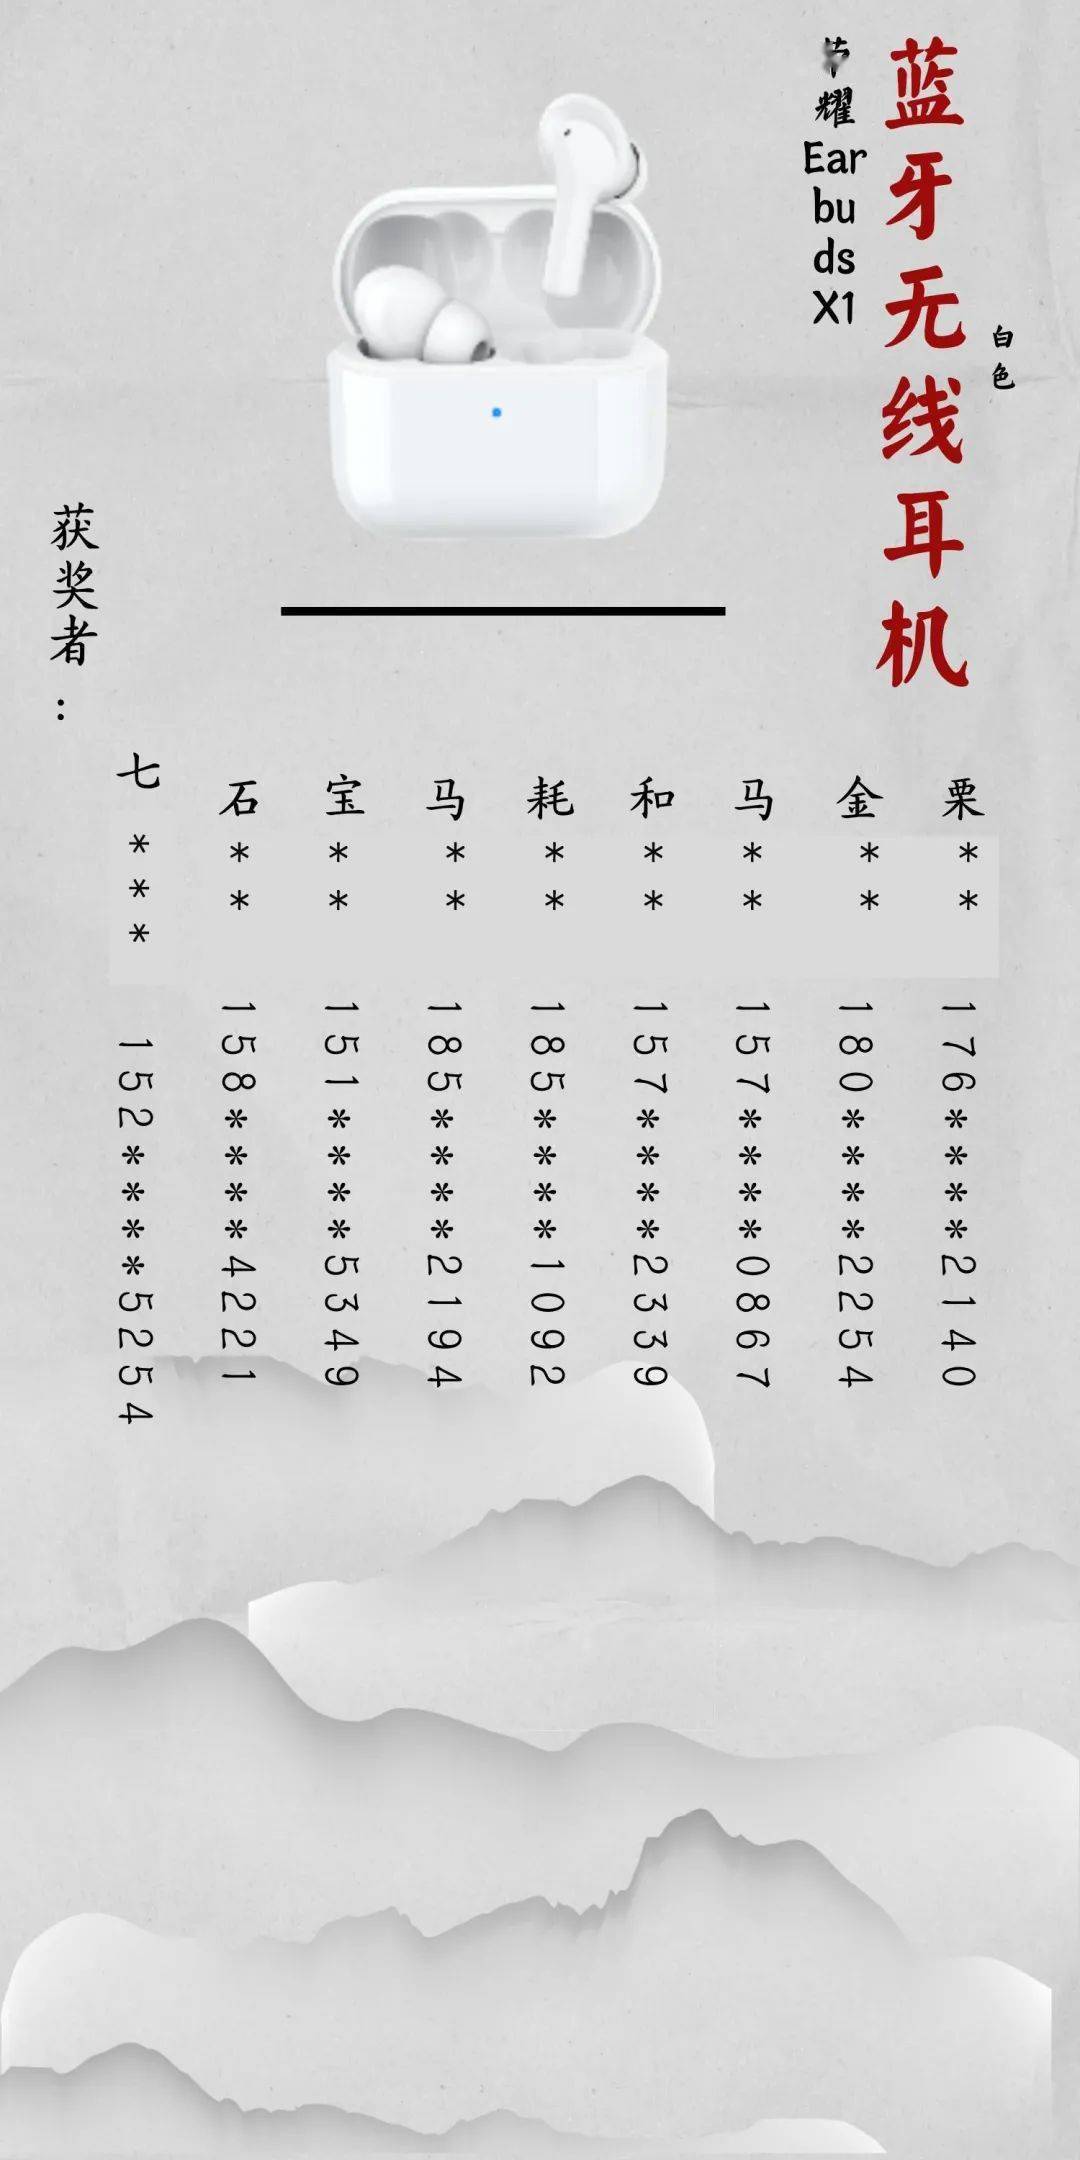 白色
蓝牙无线耳机
荣耀Earbuds X1
获奖者：
七*** 152****5254
石** 158****4221
宝** 151****5349
马** 185****2194
耗** 185****1092
和** 157****2339
马** 157****0867
金** 180****2254
栗** 176****2140